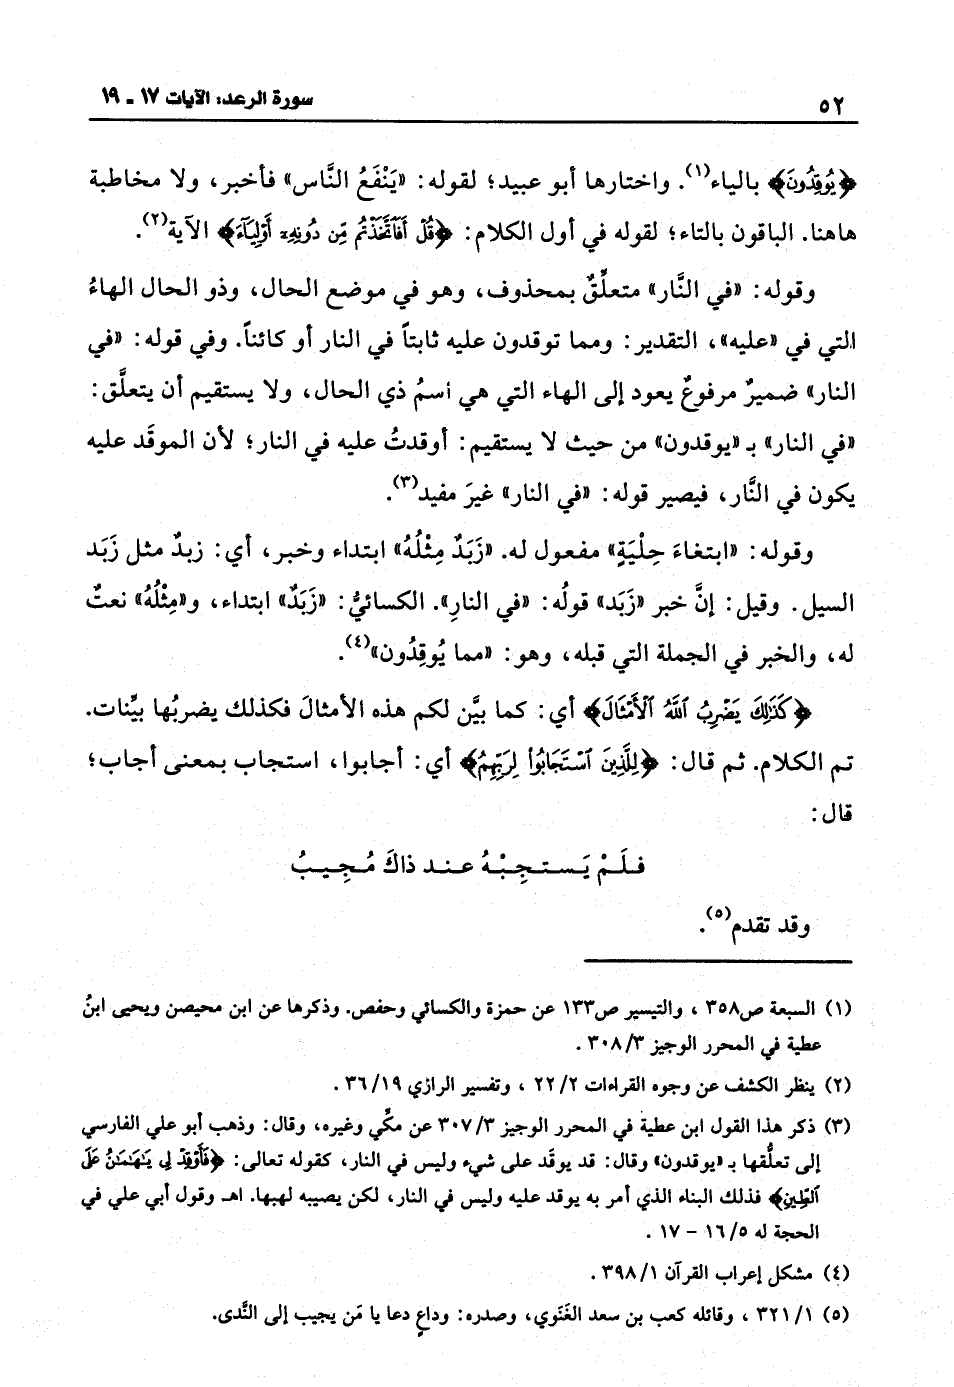 ٥٢
سورة الرعد: الآيات ١٧ ـ ١٩
﴿يُوقِدُونَ﴾ بالياء(١). واختارها أبو عبيد؛ لقوله: «يَنْفَعُ النَّاس» فأخبر، ولا مخاطبة
هاهنا. الباقون بالتاء؛ لقوله في أول الكلام: ﴿قُلْ أَفَٱتَّخَذْتُم مِّن دُونِهِۦٓ أَوْلِيَآءَ﴾ الآية(٢).
وقوله: «في النَّار» متعلِّقٌ بمحذوف، وهو في موضع الحال، وذو الحال الهاءُ
التي في «عليه»، التقدير: ومما توقدون عليه ثابتاً في النار أو كائناً. وفي قوله: «في
النار» ضميرٌ مرفوعٌ يعود إلى الهاء التي هي اسمُ ذي الحال، ولا يستقيم أن يتعلَّق:
«في النار» بـ «يوقدون» من حيث لا يستقيم: أوقدتُ عليه في النار؛ لأن الموقَد عليه
يكون في النَّار، فيصير قوله: «في النار» غيرَ مفيد(٣).
وقوله: «ابتغاءَ حِلْيَةٍ» مفعول له. «زَبَدٌ مِثْلُهُ» ابتداء وخبر، أي: زبدٌ مثل زَبَد
السيل. وقيل: إنَّ خبر «زَبَد» قولُه: «في النارِ». الكسائيُّ: «زَبَدٌ» ابتداء، و«مِثْلُهُ» نعتٌ
له، والخبر في الجملة التي قبله، وهو: «مما يُوقِدُون»(٤).
﴿كَذَٰلِكَ يَضْرِبُ ٱللَّهُ ٱلْأَمْثَالَ﴾ أي: كما بيَّن لكم هذه الأمثالَ فكذلك يضربُها بيِّنات.
تم الكلام. ثم قال: ﴿لِلَّذِينَ ٱسْتَجَابُوا۟ لِرَبِّهِمُ﴾ أي: أجابوا، استجاب بمعنى أجاب؛
قال:
فـلَـمْ يَـسـتـجِـبْـهُ عـنـد ذاكَ مُـجِـيـبُ
وقد تقدم(٥).
(١) السبعة ص٣٥٨ ، والتيسير ص١٣٣ عن حمزة والكسائي وحفص. وذكرها عن ابن محيصن ويحيى ابنُ
عطية في المحرر الوجيز ٣/ ٣٠٨ .
(٢) ينظر الكشف عن وجوه القراءات ٢/ ٢٢ ، وتفسير الرازي ١٩/ ٣٦ .
(٣) ذكر هذا القول ابن عطية في المحرر الوجيز ٣/ ٣٠٧ عن مكّي وغيره، وقال: وذهب أبو علي الفارسي
إلى تعلُّقها بـ «يوقدون» وقال: قد يوقَد على شيء وليس في النار، كقوله تعالى: ﴿فَأَوْقِدْ لِى يَٰهَٰمَٰنُ عَلَى
ٱلطِّينِ﴾ فذلك البناء الذي أمر به يوقد عليه وليس في النار، لكن يصيبه لهبها. اهـ وقول أبي علي في
الحجة له ٥/ ١٦ - ١٧ .
(٤) مشكل إعراب القرآن ١/ ٣٩٨ .
(٥) ١/ ٣٢١ ، وقائله كعب بن سعد الغَنَوي، وصدره: وداعٍ دعا يا مَن يجيب إلى النَّدى.